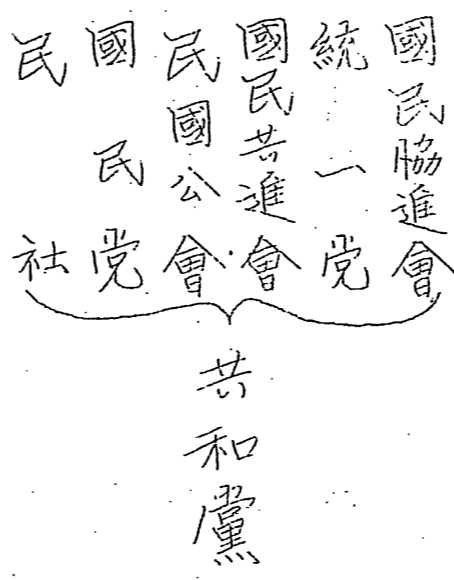 國民協進會
統一党
國民共進會
民國公會
國民党
民社
共和黨